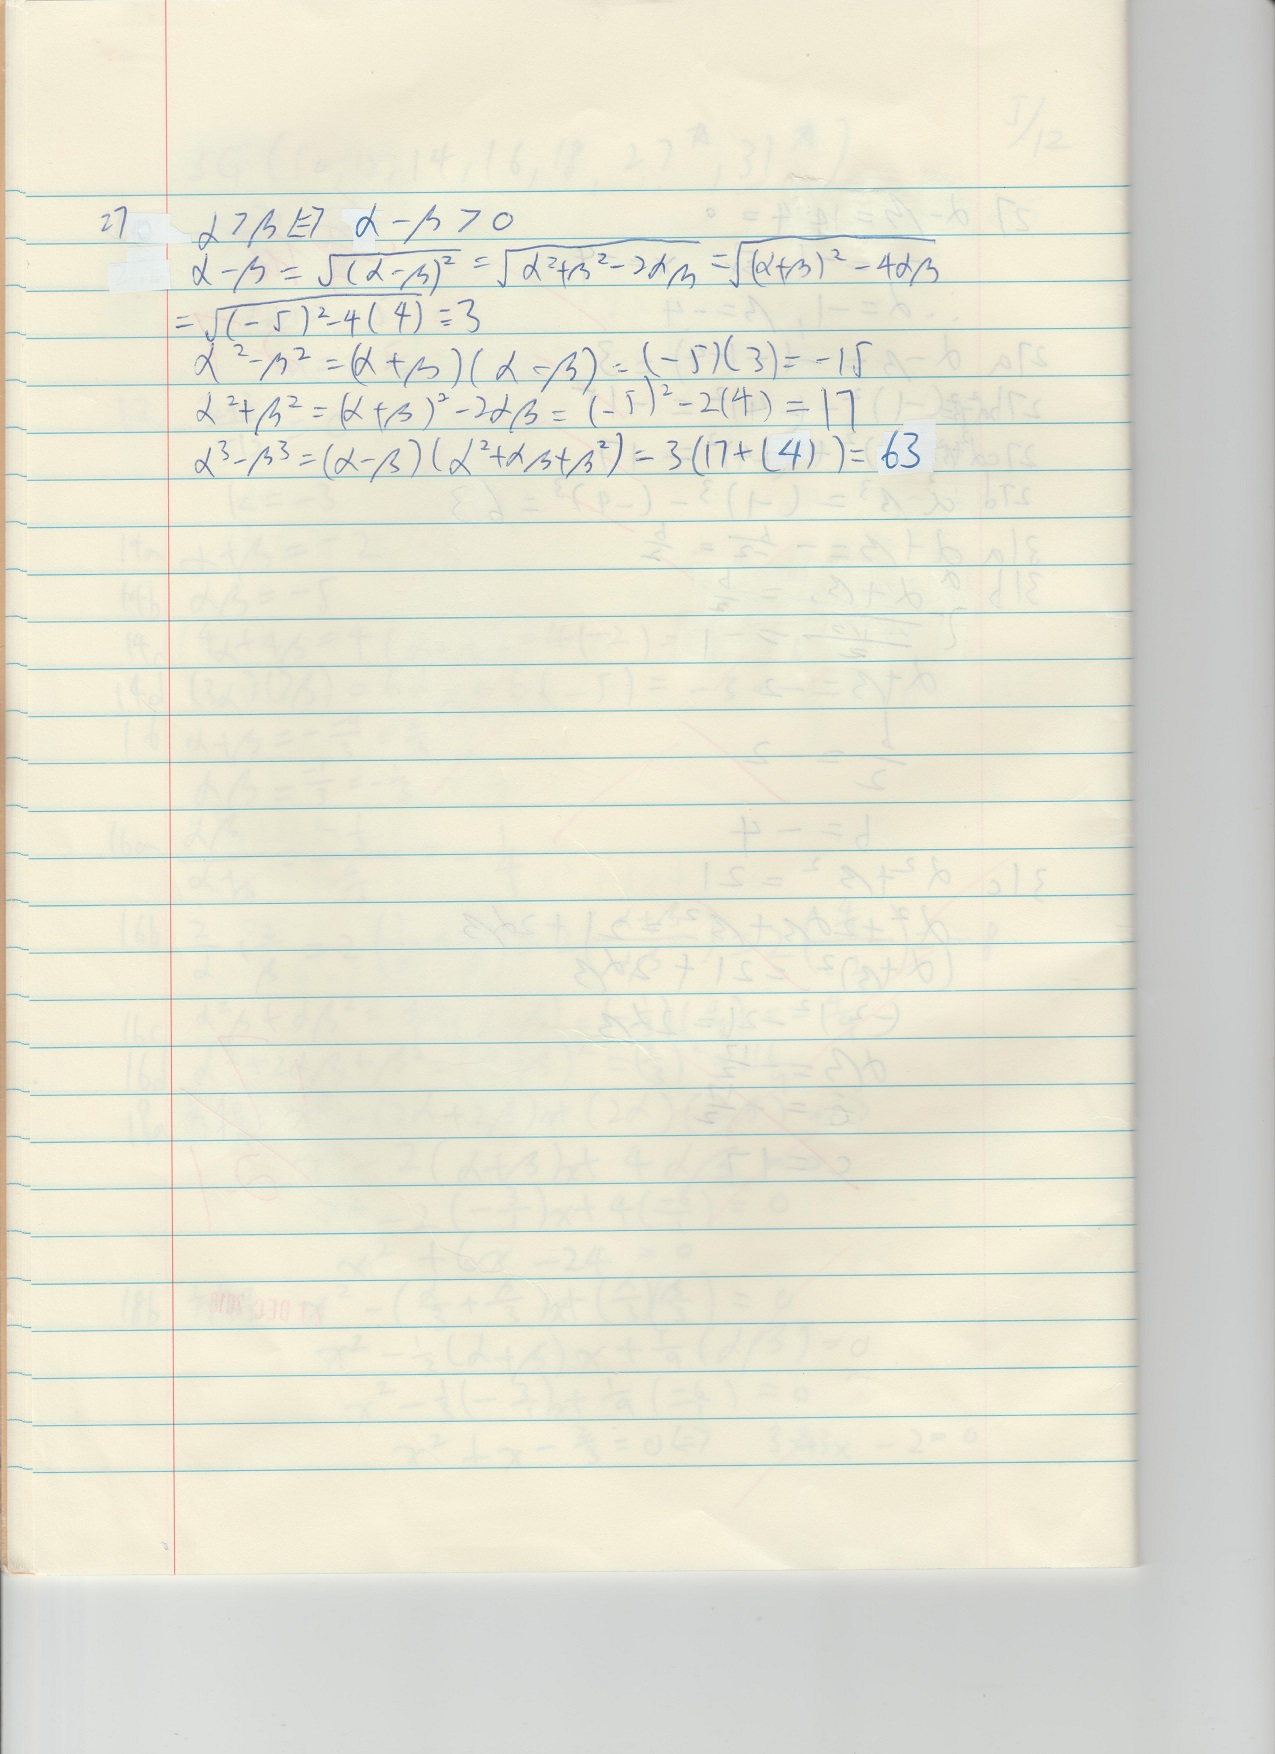 27 α > β ⇔ α - β > 0
α - β = √(α-β)² = √α²+β²-2αβ = √(α+β)² - 4αβ
= √(-5)²-4(4) = 3
α²-β² = (α+β)(α-β) = (-5)(3) = -15
α²+β² = (α+β)²-2αβ = (-5)²-2(4) = 17
α³-β³ = (α-β)(α²+αβ+β²) = 3(17+(4)) = 63